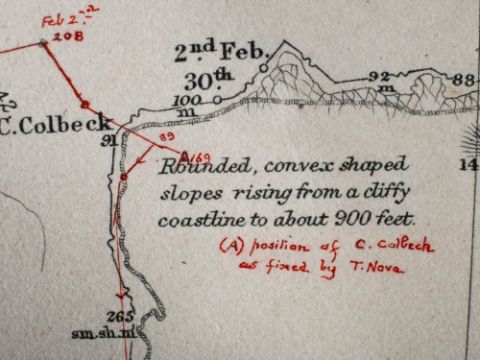 Feb 2nd
208
2nd Feb.
30th
100
m
92
m
88
C. Colbeck
91
89
169
14
Rounded, convex shaped
slopes rising from a cliffy
coastline to about 900 feet.
(A) position of C. Colbeck
as fixed by T. Nova
265
sm.sh.m